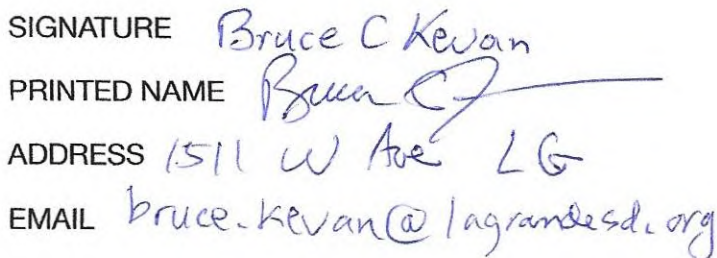 SIGNATURE Bruce C Kevan
PRINTED NAME Bruce C
ADDRESS 1511 W Ave LG
EMAIL bruce.kevan@lagrandesd.org